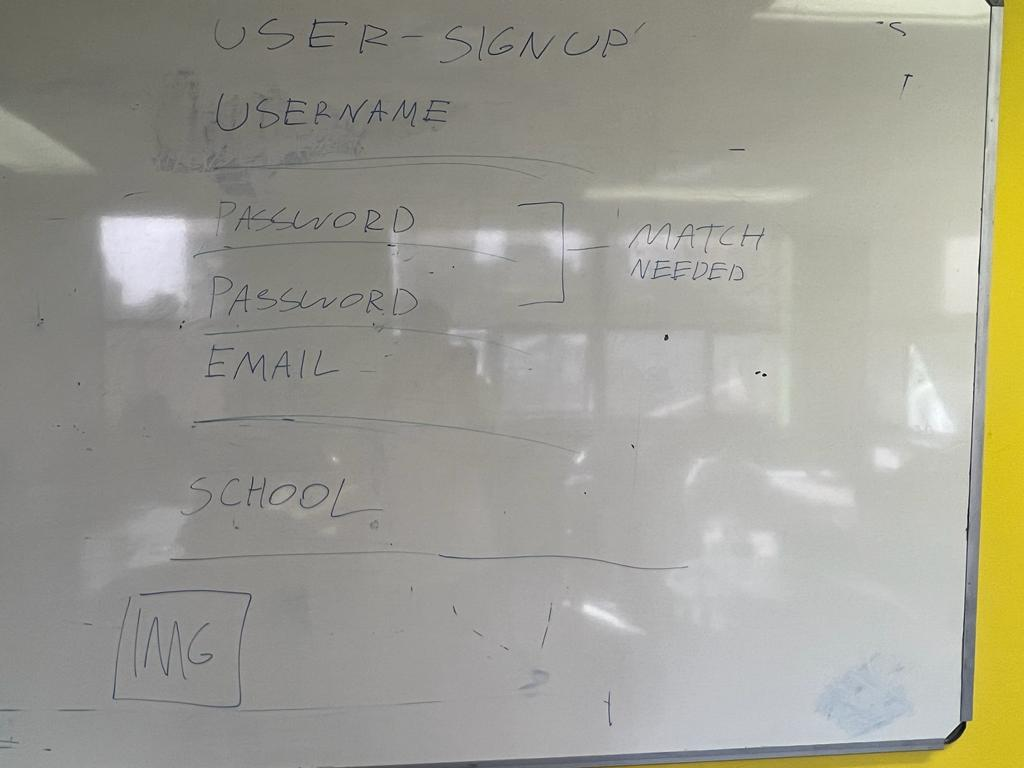 USER-SIGNUP
USERNAME
PASSWORD
PASSWORD
MATCH
NEEDED
EMAIL
SCHOOL
IMG